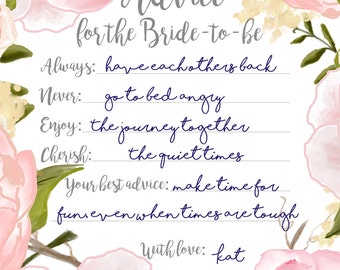 Advice
for the Bride-to-be
Always: have eachothers back
Never: go to bed angry
Enjoy: the journey together
Cherish: the quiet times
Your best advice: make time for
fun, even when times are tough
With love: kat